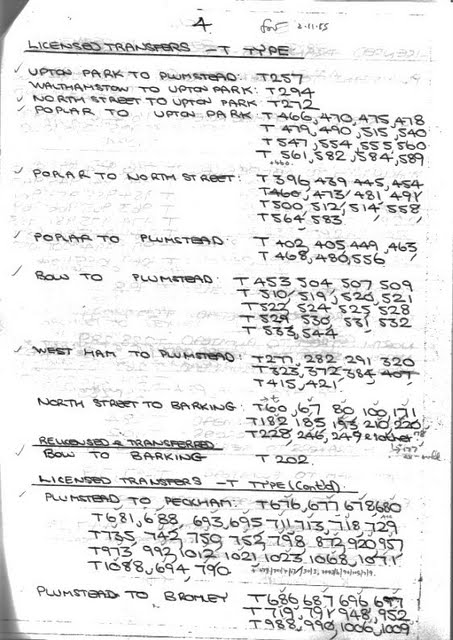 4 for 2.11.55
LICENSED TRANSFERS - T TYPE
✓ UPTON PARK TO PLUMSTEAD: T257
WALTHAMSTOW TO UPTON PARK: T294
✓ NORTH STREET TO UPTON PARK: T272
✓ POPLAR TO UPTON PARK T466, 470, 475, 478
T 479, 490, 515, 540
T 547, 554, 555, 560
T 561, 582, 584, 589
✓ POPLAR TO NORTH STREET: T396 439 445, 454
T460, 473 481 491
T500 512, 514 558
T564 583
✓ POPLAR TO PLUMSTEAD: T 402, 405 449, 463
T 468, 480, 556
✓ BOW TO PLUMSTEAD: T453 504 507 509
T 510, 519, 520, 521
T522, 524 525 528
T 529 530 531 532
T 533, 544
✓ WEST HAM TO PLUMSTEAD: T277 282 291 320
T323, 372 384 407
T415, 421
NORTH STREET TO BARKING: T60, 67 80 100, 171
T182 185 193 210 220
T228, 246, 249
RELICENSED & TRANSFERRED
✓ BOW TO BARKING T 202
LICENSED TRANSFERS - T TYPE (Cont'd)
✓ PLUMSTEAD TO PECKHAM: T676, 677 678 680
T681, 688, 693, 695 711 713 718 729
T735 742 750 752 798 872 920 957
T973 992 1012 1021 1023 1068, 1071
T1088, 694, 790
PLUMSTEAD TO BROMLEY T686 687 696 697
T719, 791 948, 952
T988, 990, 1006, 1009